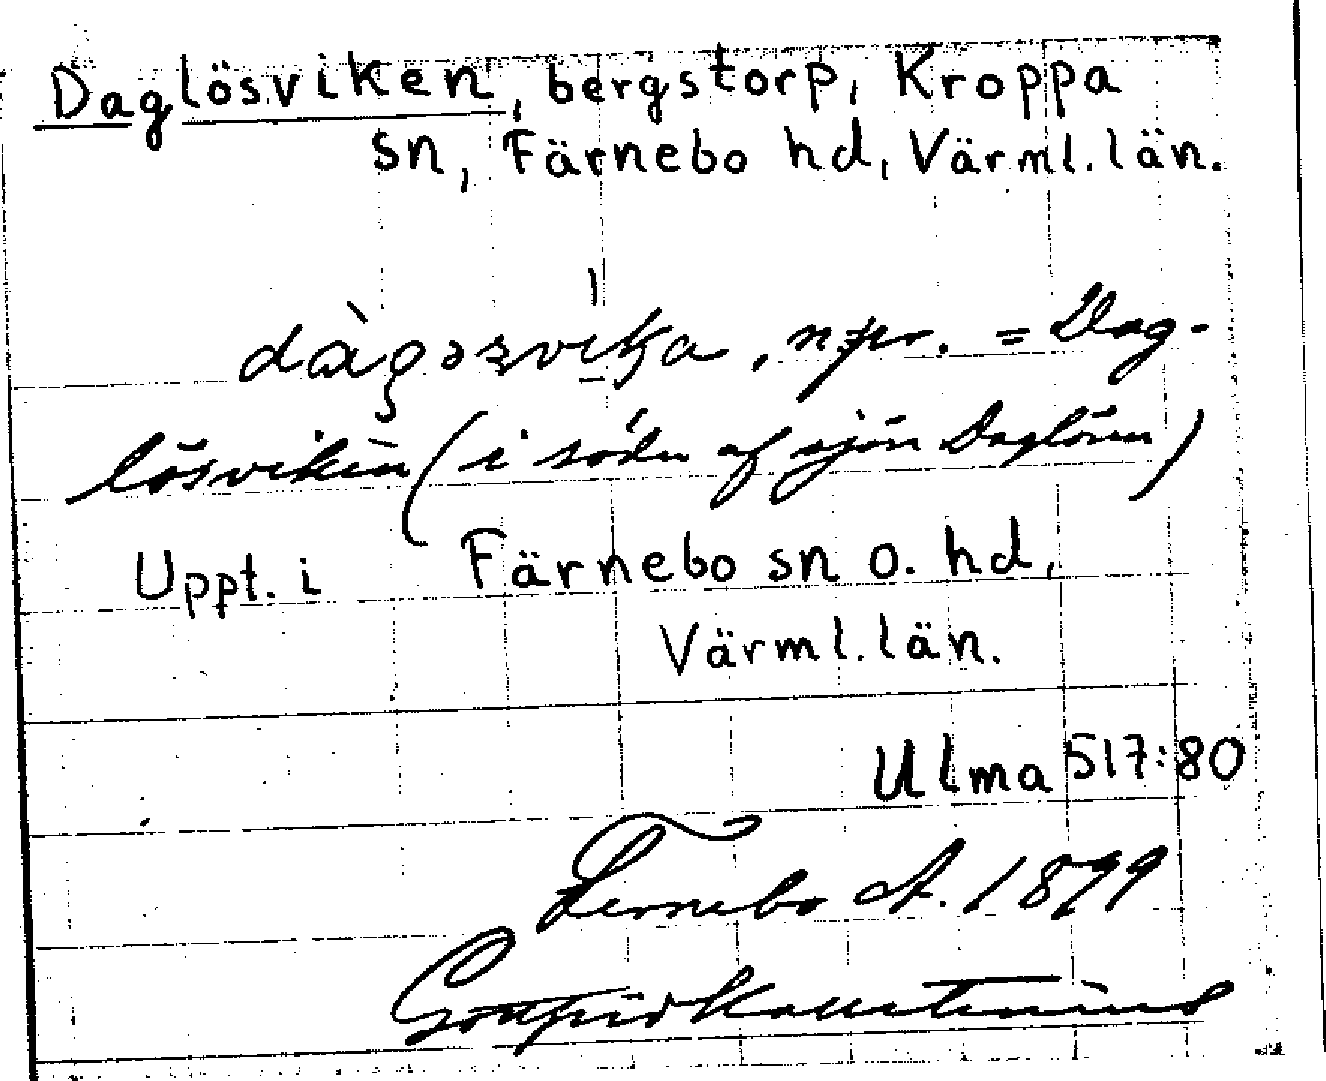 Daglösviken, bergstorp, Kroppa
sn, Färnebo hd, Värml. län.
n.pr. = Dag-
lösviken (i södr af sjön Daglösen)
Uppt. i Färnebo sn o. hd,
Värml. län.
Ulma 517:80
Fernebo A. 1899
Gottfrid Kallstenius